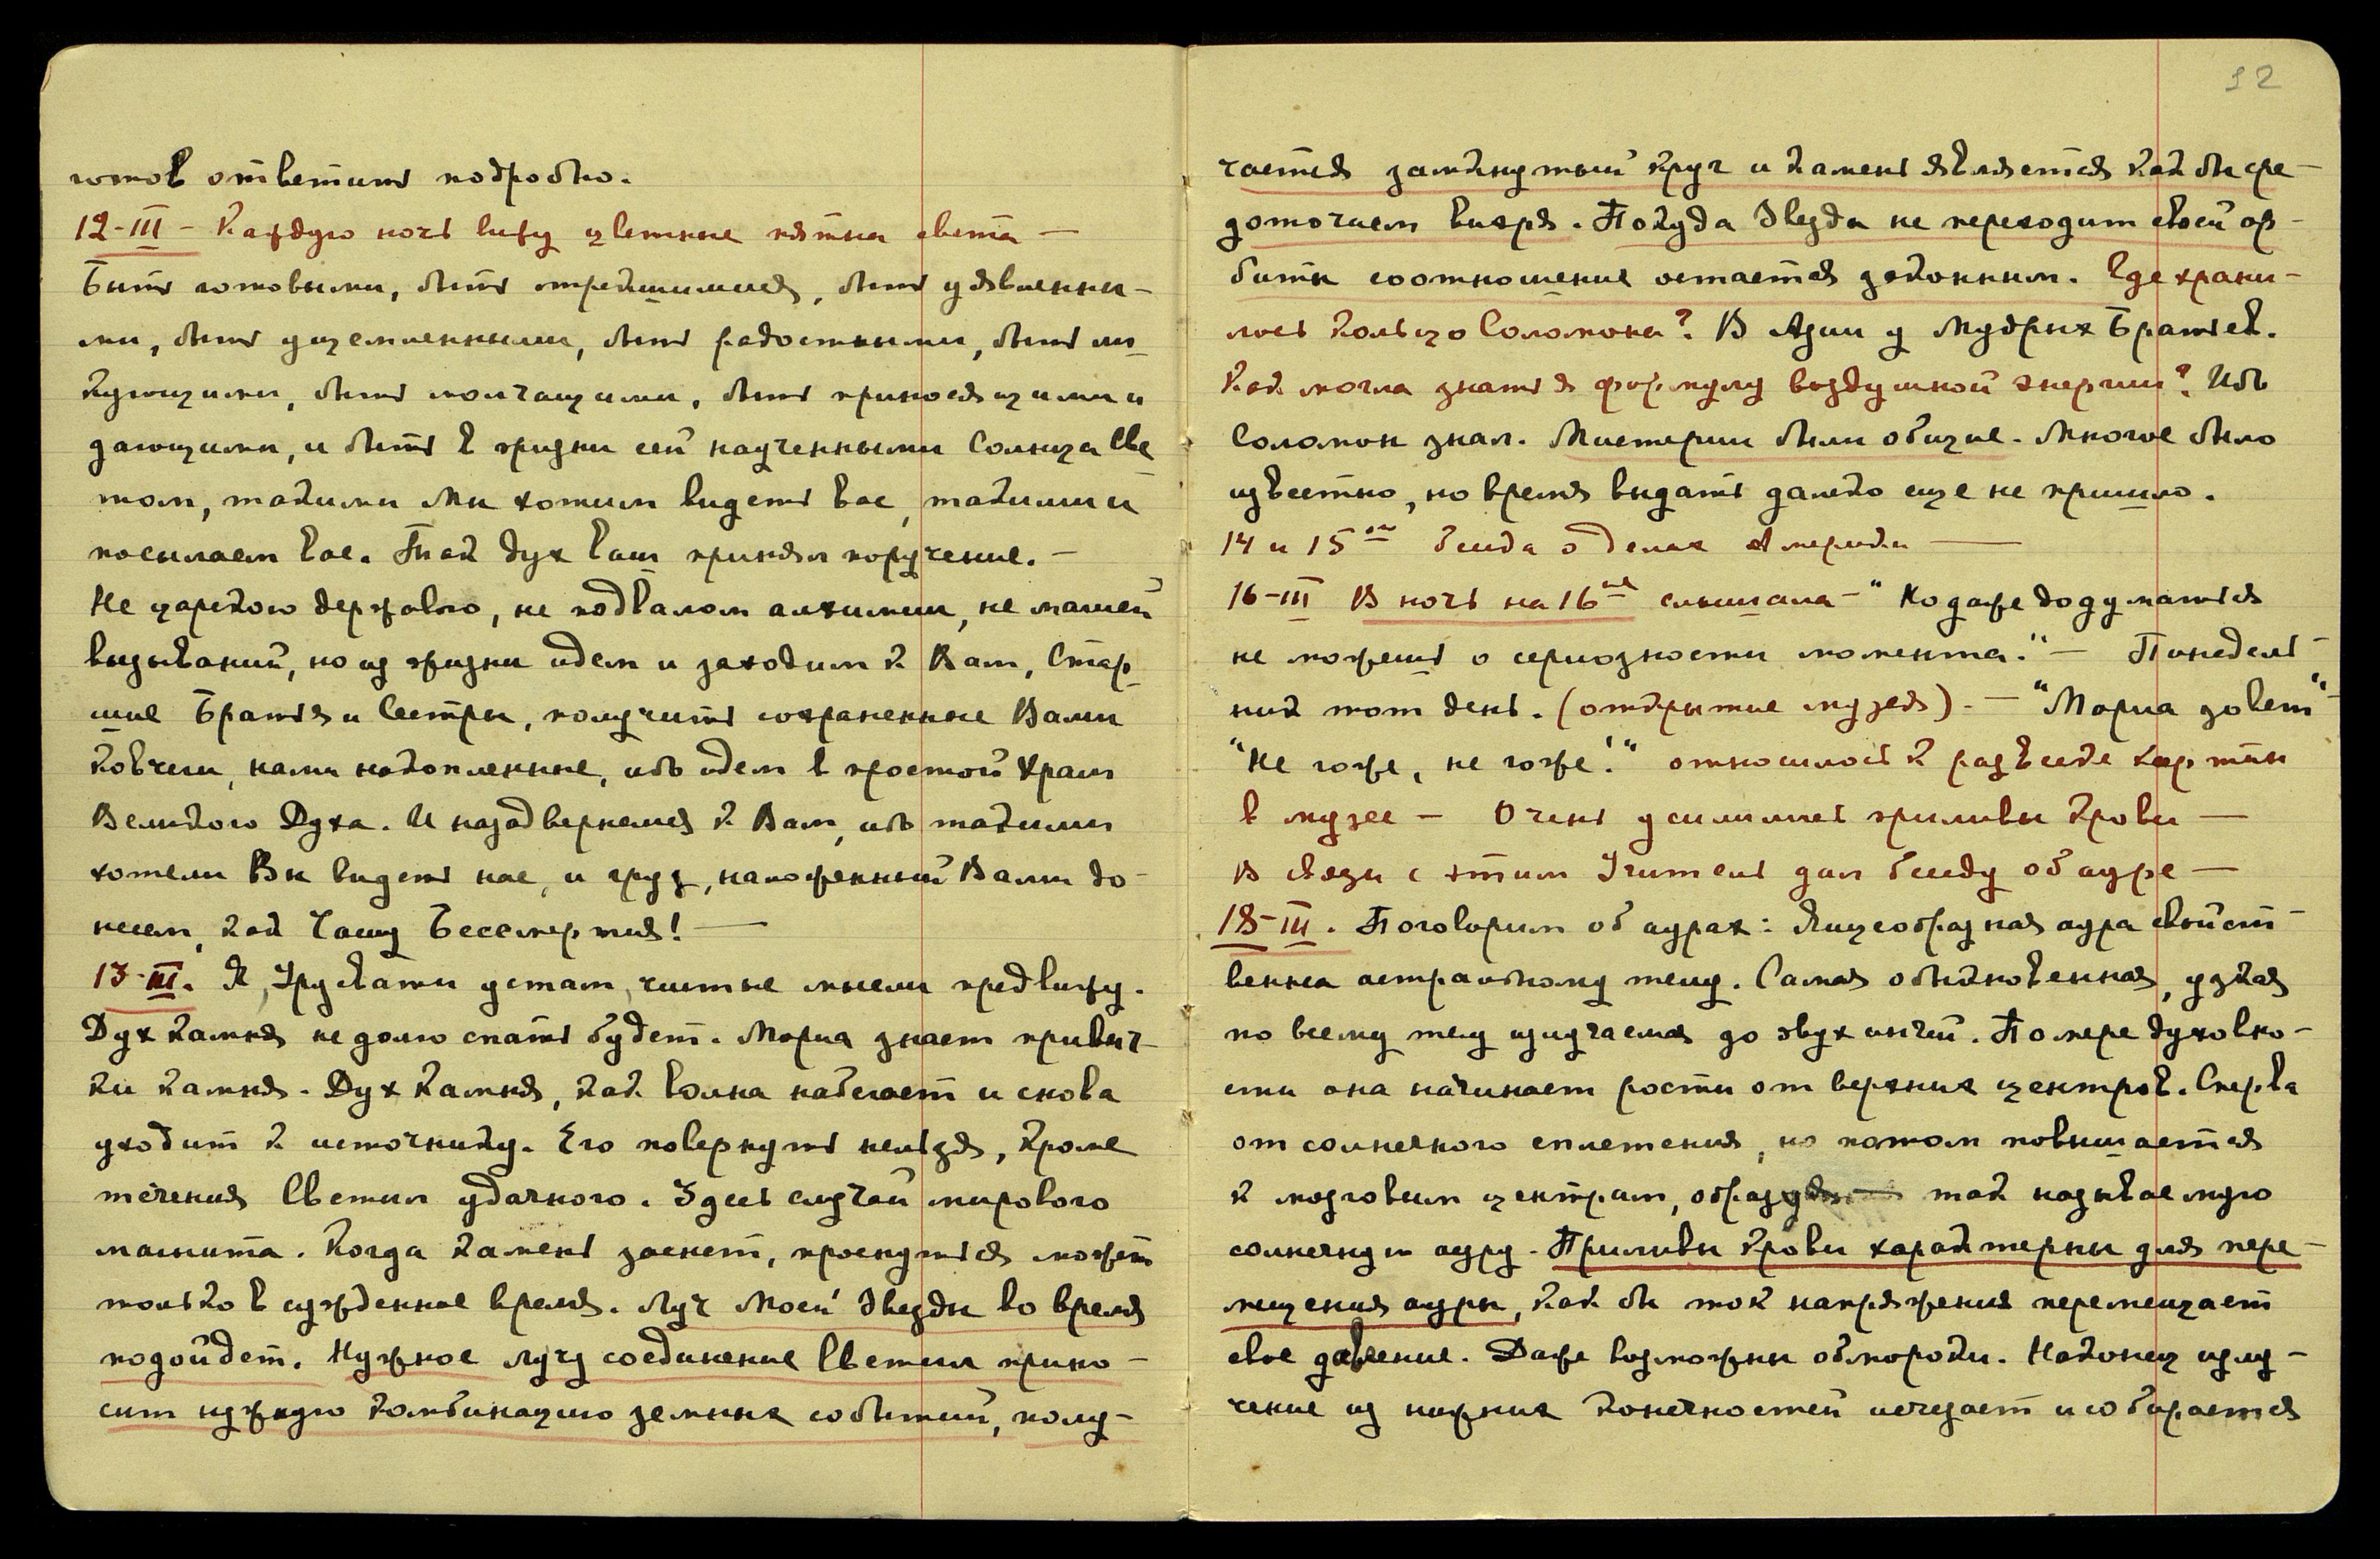 готов ответить подробно.
12-III – Каждую ночь вижу цветные пятна света –
Быть готовыми, быть стремящимися, быть уязвленны-
ми, быть ущемленными, быть радостными, быть ли-
кующими, быть молчащими, быть приносящими и
дающими, и быть в жизни сей наученными Солнца Све
том, такими Мы хотим видеть вас, такими и
посылаем вас. Так дух ваш принял поручение. –
Не царскою державою, не подвалом алхимии, не магией
вызываний, но из жизни идем и заходим к Вам, Стар-
шие Братья и Сестры, получить сохраненные Вами
ковчеги, нами накопленные, ибо идем в простой Храм
Великого Духа. И назад вернемся к Вам, ибо такими
хотели Вы видеть нас, и груз, наложенный Вами до-
несем, как Чашу Бессмертия! –
13-III. Я, Урусвати устам, чистые мысли предвижу.
Дух камня не долго спать будет. Мориа знает привыч-
ки камня. Дух камня, как волна набегает и снова
уходит к источнику. Его повернуть нельзя, кроме
течения Светил удачного. Здесь случай мирового
магнита. Когда камень заснет, проснуться может
только в сужденное время. Луч Моей Звезды во время
подойдет. Нужное лучу соединение Светил прино-
сит нужную комбинацию земных событий, полу-
92
чается замкнутый круг и камень является как бы сре-
доточием вихря. Покуда Звезда не переходит своей ор-
биты соотношение остается законным. Где храни-
лось кольцо Соломона? В Азии у Мудрых Братьев.
Как могла знаться формула воздушной энергии? Ибо
Соломон знал. Мистерии были общие. Многое было
известно, но время выдать далеко еще не пришло.
14 и 15ое беседа о делах Америки –
16-III В ночь на 16ое слышала – "Но даже додуматься
не можешь о серьозности момента." – Понедель-
ник тот день. (открытие музея). – "Мориа зовет" –
"Не гоже, не гоже!" относилось к развеске картин
в музее – Очень усилились приливы крови –
В связи с этим Учитель дал беседу об ауре –
18-III. Поговорим об аурах: Яйцеобразная аура свойст-
венна астральному телу. Самая обыкновенная, узкая
по всему телу излучаемая до двух инчей. По мере духовно-
сти она начинает рости от верхних центров. Сперва
от солнечного сплетения, но потом повышается
к мозговым центрам, образуя так называемую
солнечную ауру. Приливы крови характерны для пере-
мещения ауры, как бы ток напряжения перемещает
свое давление. Даже возможны обмороки. Наконец излу-
чение из нижних конечностей исчезает и собирается